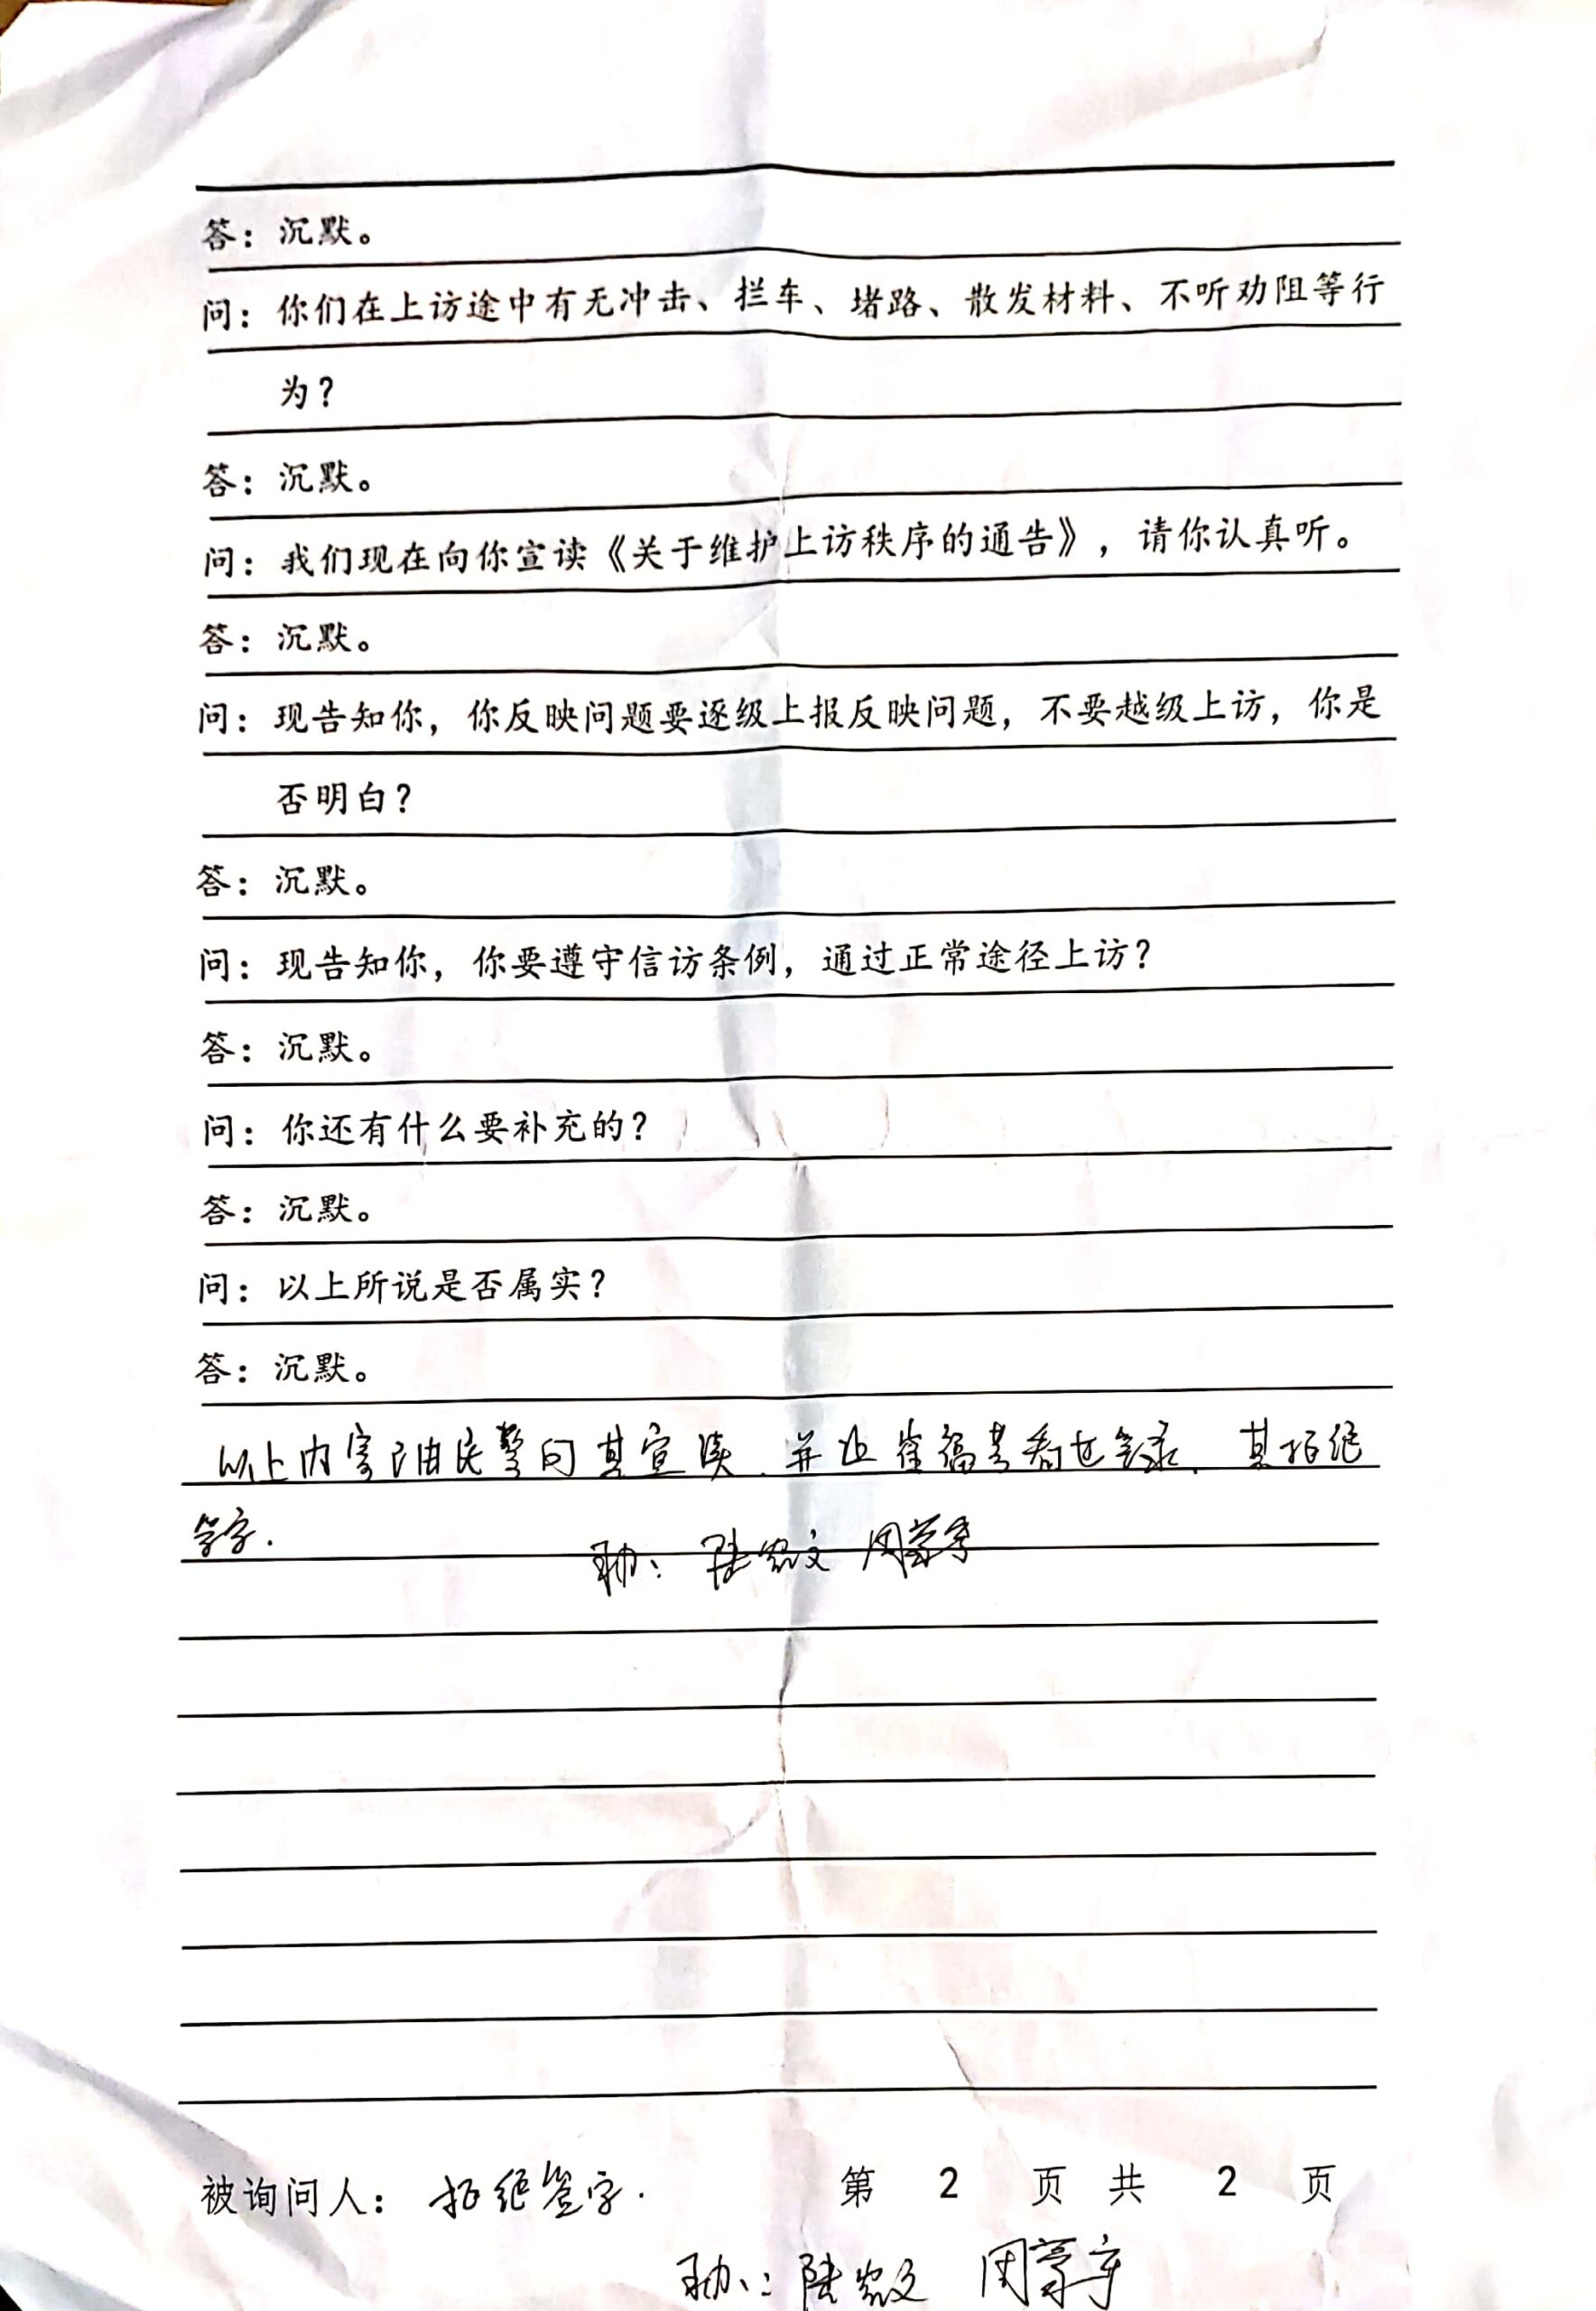 答：沉默。
问：你们在上访途中有无冲击、拦车、堵路、散发材料、不听劝阻等行
为？
答：沉默。
问：我们现在向你宣读《关于维护上访秩序的通告》，请你认真听。
答：沉默。
问：现告知你，你反映问题要逐级上报反映问题，不要越级上访，你是
否明白？
答：沉默。
问：现告知你，你要遵守信访条例，通过正常途径上访？
答：沉默。
问：你还有什么要补充的？
答：沉默。
问：以上所说是否属实？
答：沉默。
以上内容已由民警向其宣读.并让崔福芳看过笔录.其拒绝
签字.
被询问人：拒绝签字. 第 2 页 共 2 页